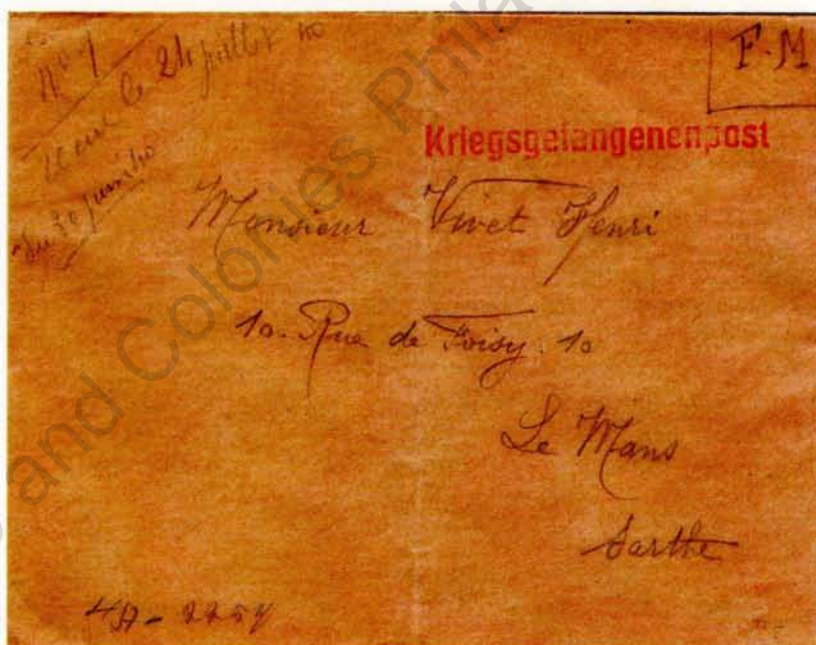 N° 1
le 24 juillet 40
du 30 juin 40
F.M
Kriegsgefangenenpost
Monsieur Vivet Henri
10. Rue de Foisy. 10
Le Mans
Sarthe
and Colonies Phila